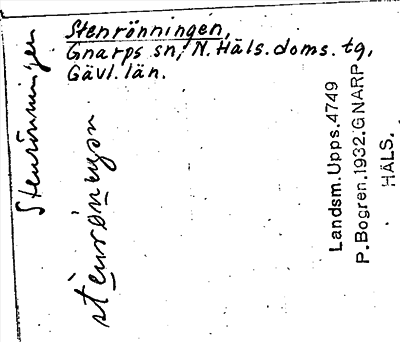 Stenrönningen,
Gnarps sn, N. Häls. doms. tg,
Gävl. län.
Stenrönningen
Landsm. Upps. 4749
P. Bogren. 1932. GNARP
HÄLS.